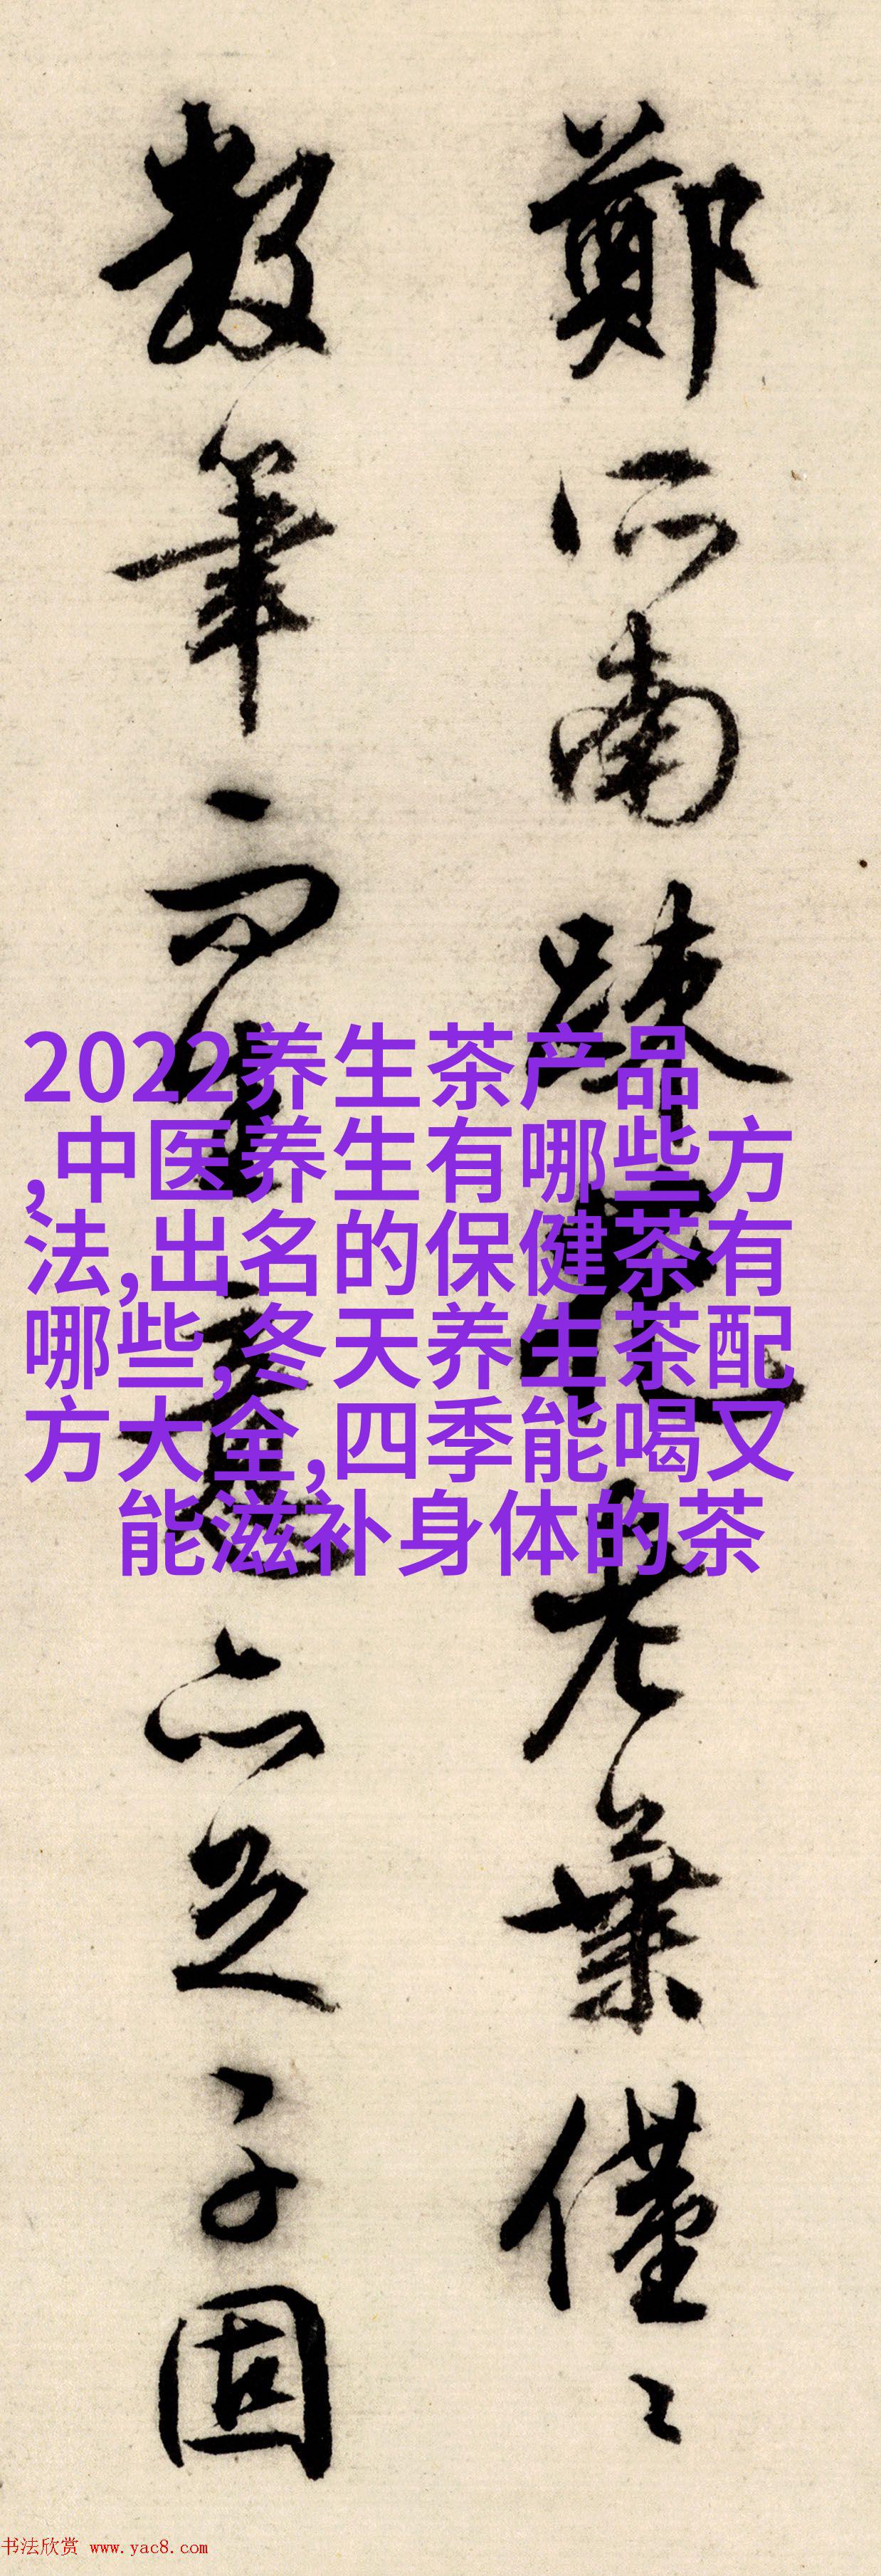 鄭所南疎花老葉僅〻
數筆而生意亦足予固
2022养生茶产品
,中医养生有哪些方
法,出名的保健茶有
哪些,冬天养生茶配
方大全,四季能喝又
能滋补身体的茶
书法欣赏 www.yac8.com